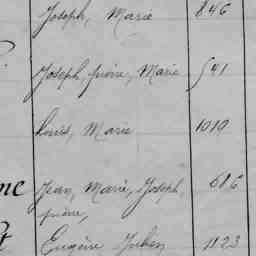 Joseph, Marie 846
Joseph, pierre, Marie 541
Louis, Marie 1010
ne Jean, Marie, Joseph, 686
pierre,
Eugène Julien 1123